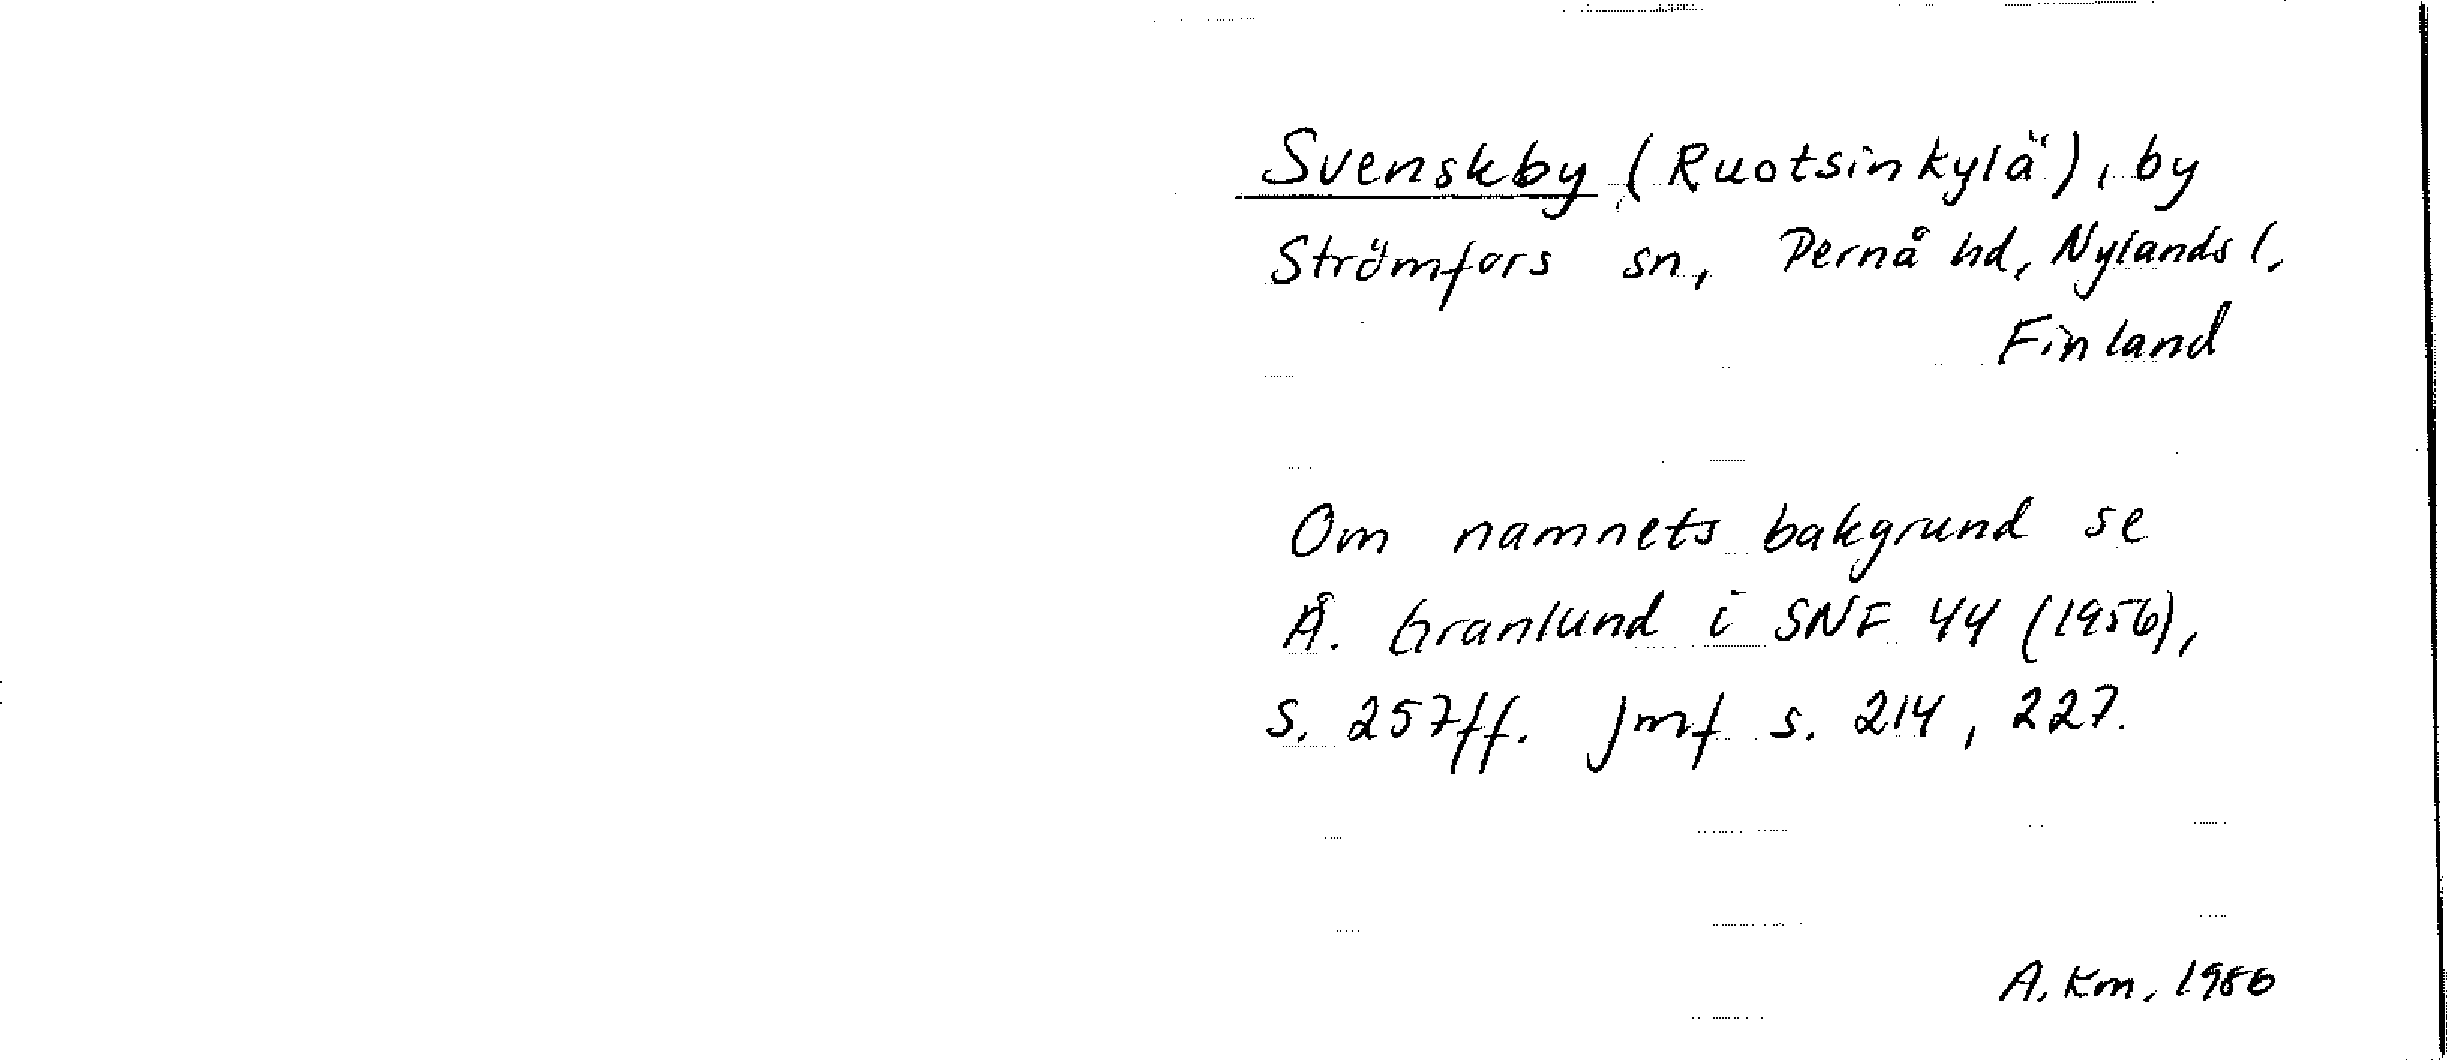 Svenskby (Ruotsinkylä), by
Strömfors sn, Pernå hd, Nylands l,
Finland
Om namnets bakgrund se
Å. Granlund i SNF 44 (1956),
s. 257ff. Jmf s. 214, 227.
A. Km. 1986